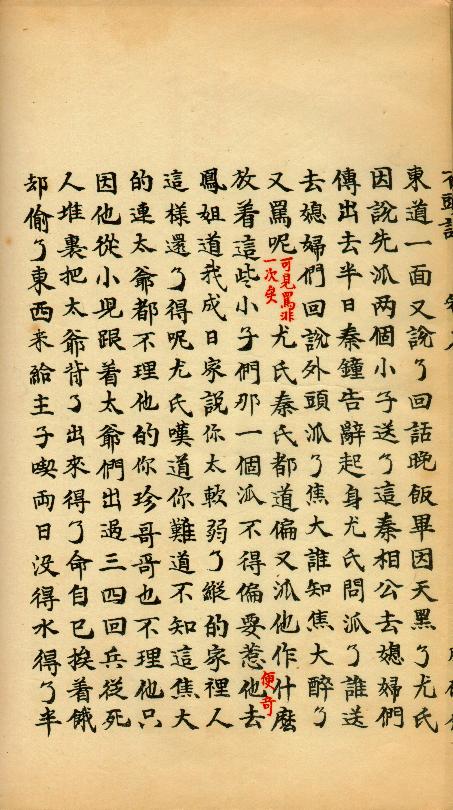 石頭記
東道一面又說了回話晚飯畢因天黑了尤氏
因說先派两個小子送了這秦相公去媳婦們
傳出去半日秦鐘告辭起身尤氏問派了誰送
去媳婦們回說外頭派了焦大誰知焦大醉了
又罵呢可見罵非一次矣尤氏秦氏都道偏又派他作什麽
放着這些小子們那一個派不得偏要惹他去便奇
鳳姐道我成日家說你太軟弱了縱的家裡人
這樣還了得呢尤氏嘆道你難道不知這焦大
的連太爺都不理他的你珍哥哥也不理他只
因他從小兒跟着太爺們出過三四回兵從死
人堆裏把太爺背了出來得了命自己挨着餓
却偷了東西来給主子喫両日没得水得了半